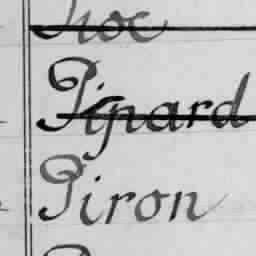 Pipard
Piron